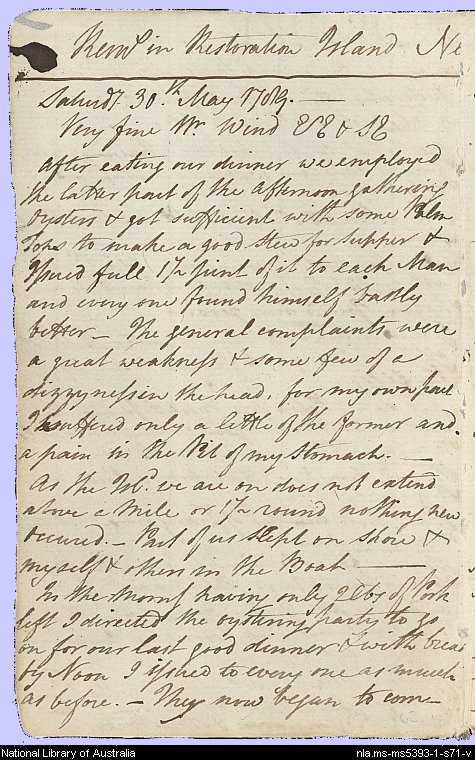 Rem.ks in Restoration Island Ne
Saturd.y 30.th May 1789. —
Very fine Wr Wind ESE & SE
After eating our dinner we employed
the latter part of the afternoon gathering
Oysters & got sufficient with some Palm
Tops to make a good stew for supper &
Issued full 1 1/2 pint of it to each Man
and every one found himself vastly
better — The general complaints were
a great weakness & some few of a
dizzyness in the head, for my own part
I suffered only a little of the former and
a pain in the Pit of my Stomach. —
As the Isl.d we are on does not extend
above a Mile or 1 1/2 round nothing new
occured. — Part of us slept on shore &
myself & others in the Boat —
In the Morn.g having only 2 lbs of Pork
left I directed the oystering party to go
on for our last good dinner & with bread
by Noon I issued to every one as much
as before. — They now began to com—
National Library of Australia
nla.ms-ms5393-1-s71-v